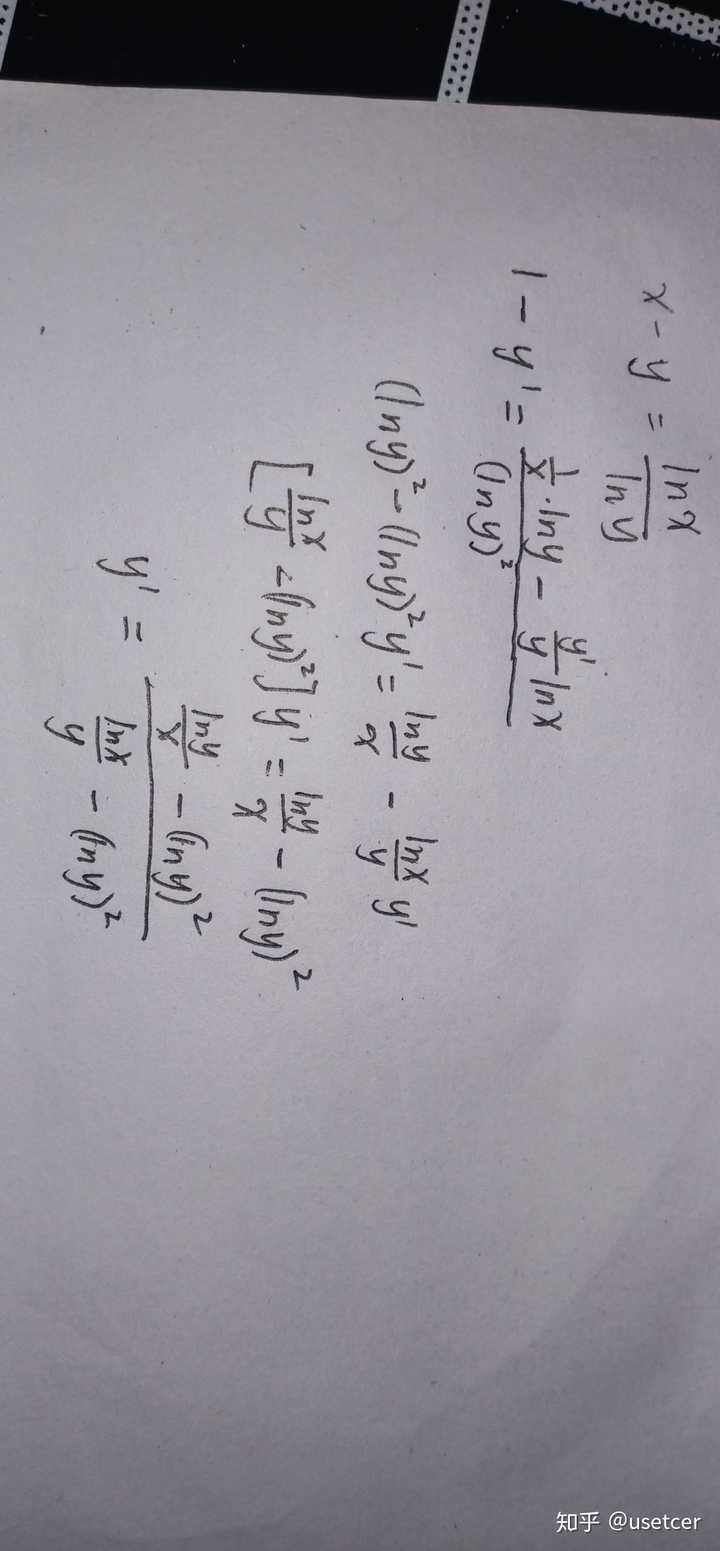 x - y = \frac{\ln x}{\ln y}
1 - y' = \frac{\frac{1}{x} \cdot \ln y - \frac{y'}{y} \ln x}{(\ln y)^2}
(\ln y)^2 - (\ln y)^2 y' = \frac{\ln y}{x} - \frac{\ln x}{y} y'
[\frac{\ln x}{y} - (\ln y)^2] y' = \frac{\ln y}{x} - (\ln y)^2
y' = \frac{\frac{\ln y}{x} - (\ln y)^2}{\frac{\ln x}{y} - (\ln y)^2}
知乎 @usetcer